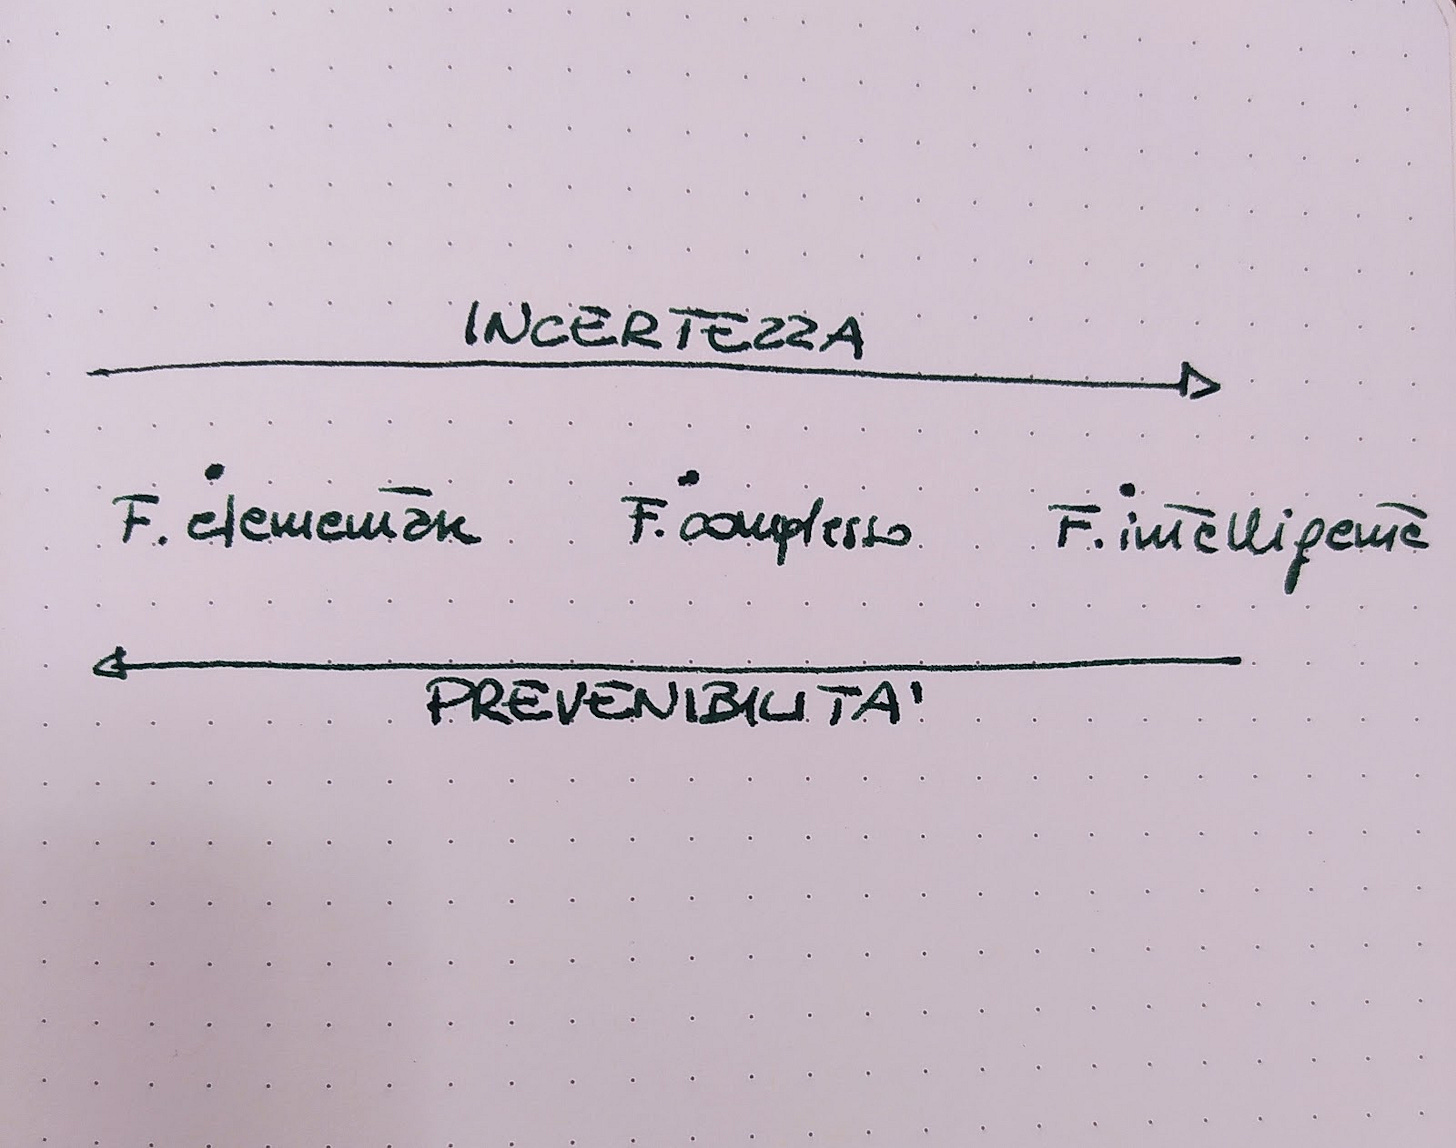 INCERTEZZA
F. elementare F. complesso F. intelligente
PREVENIBILITA'